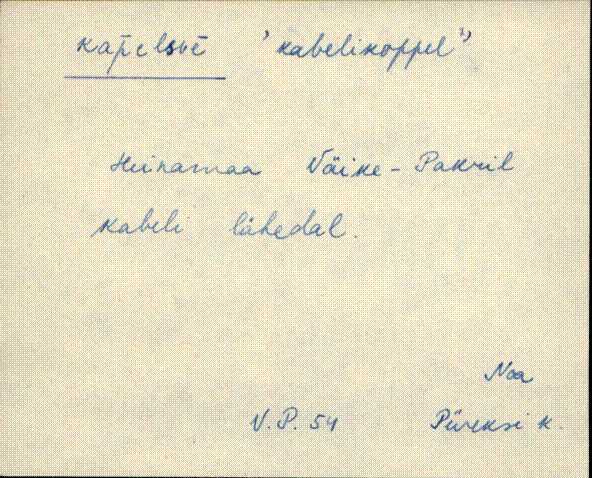 kapelsvē 'kabelikoppel'
Heinamaa Väike-Pakril
kabeli lähedal.
Noa
V.P. 54 Püreksi k.